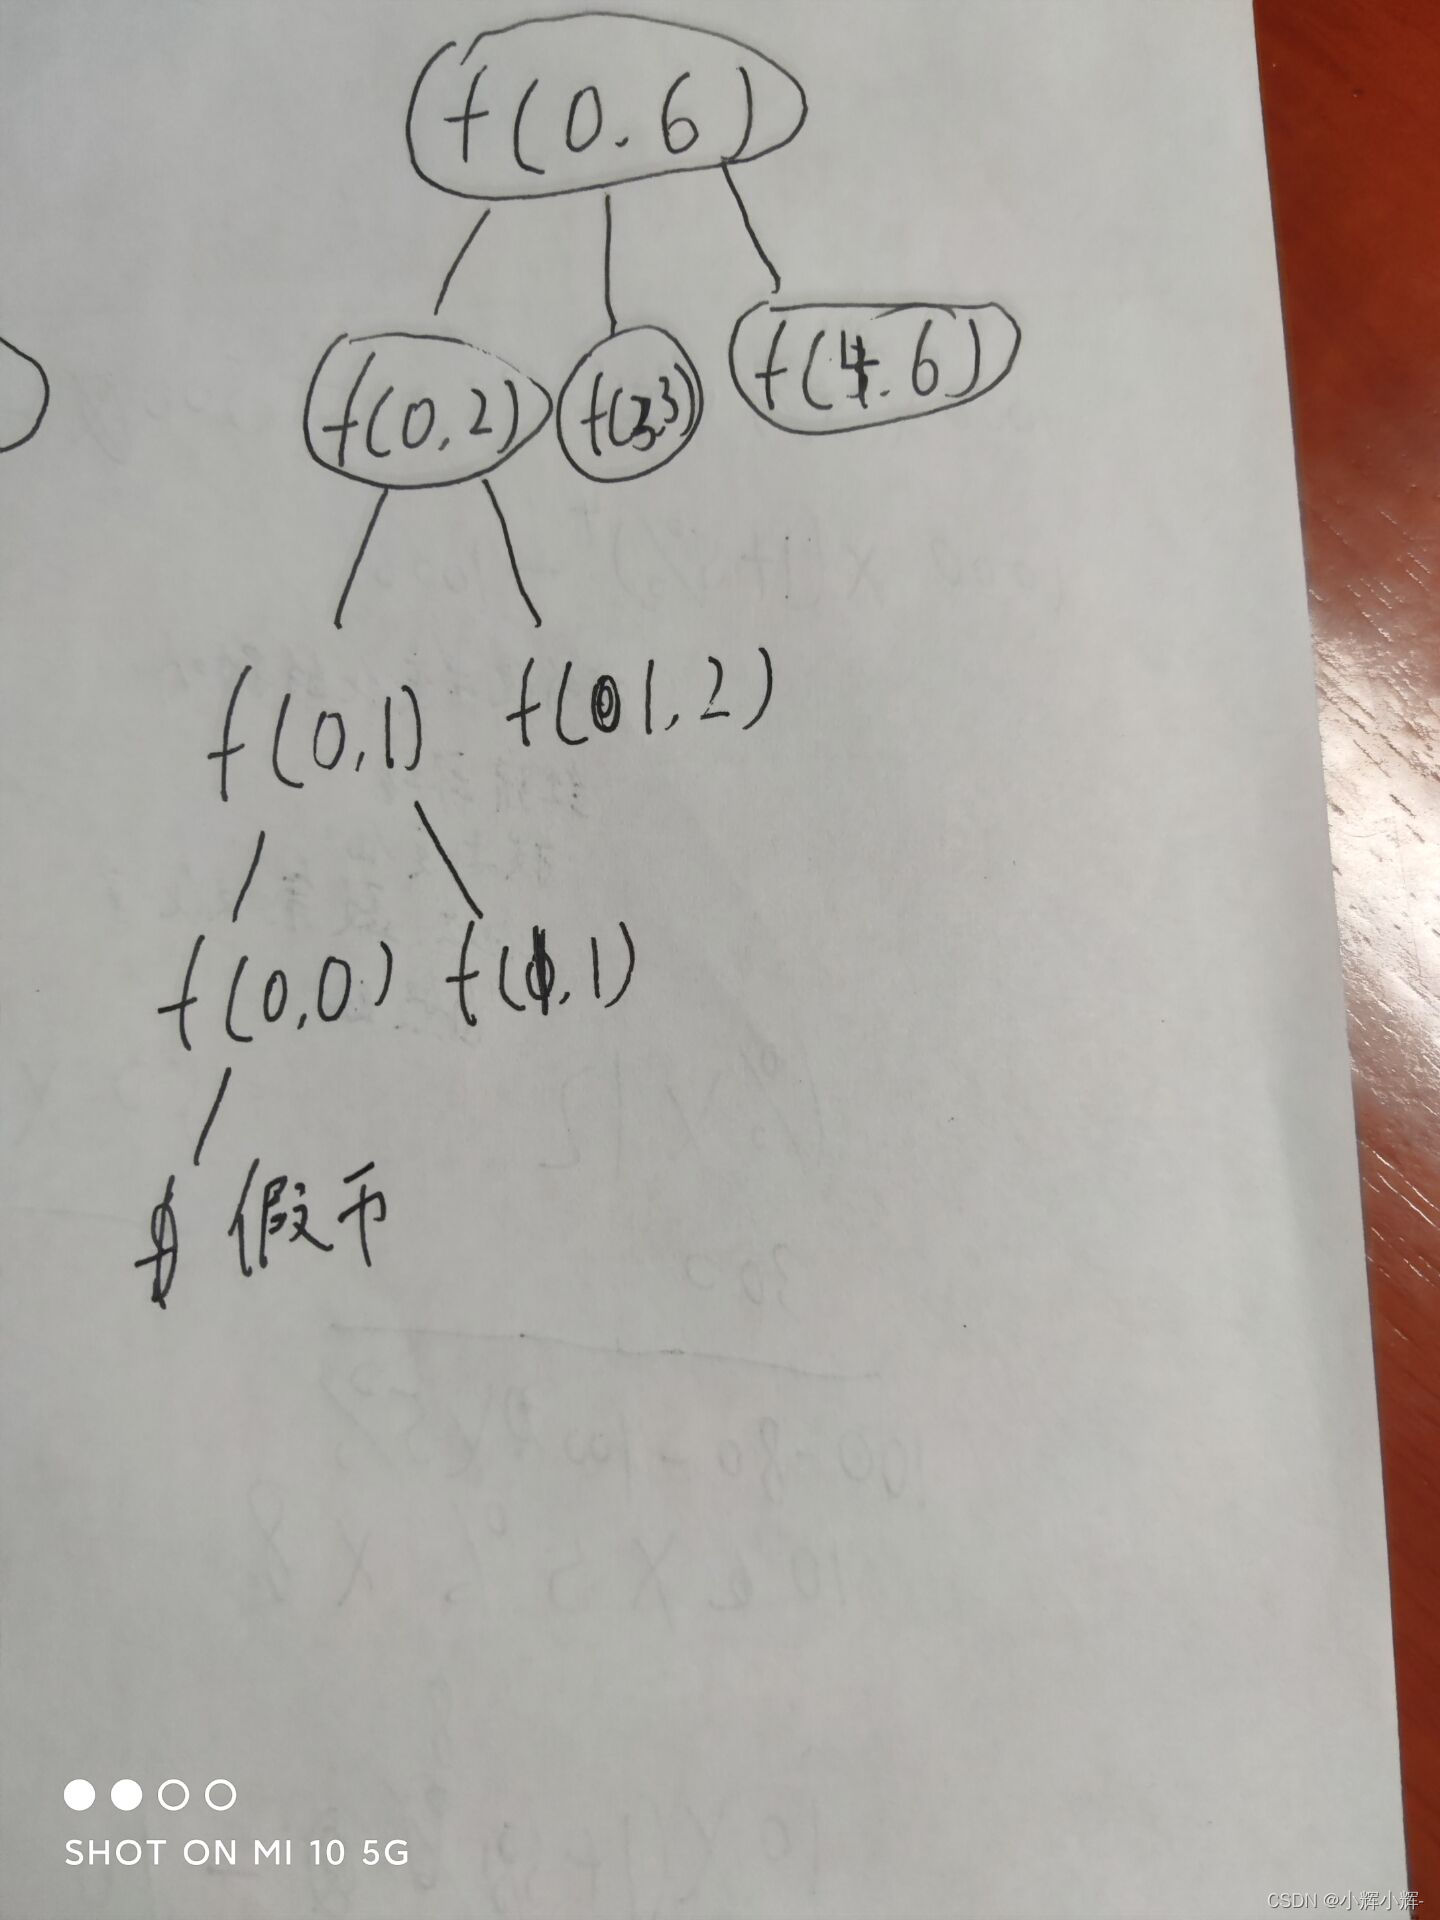 f(0.6)
f(0,2) f(3,3) f(4.6)
f(0,1) f(1,2)
f(0,0) f(1,1)
假币
SHOT ON MI 10 5G
CSDN @小辉小辉-